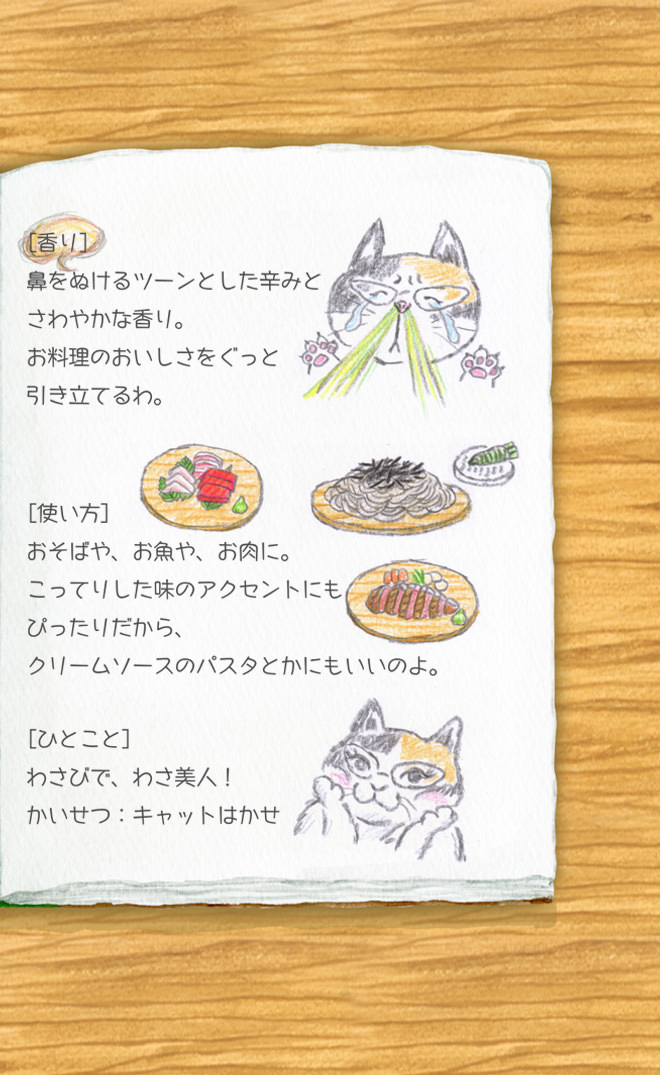 [香り]
鼻をぬけるツーンとした辛みと
さわやかな香り。
お料理のおいしさをぐっと
引き立てるわ。
[使い方]
おそばや、お魚や、お肉に。
こってりした味のアクセントにも
ぴったりだから、
クリームソースのパスタとかにもいいのよ。
[ひとこと]
わさびで、わさ美人！
かいせつ：キャットはかせ